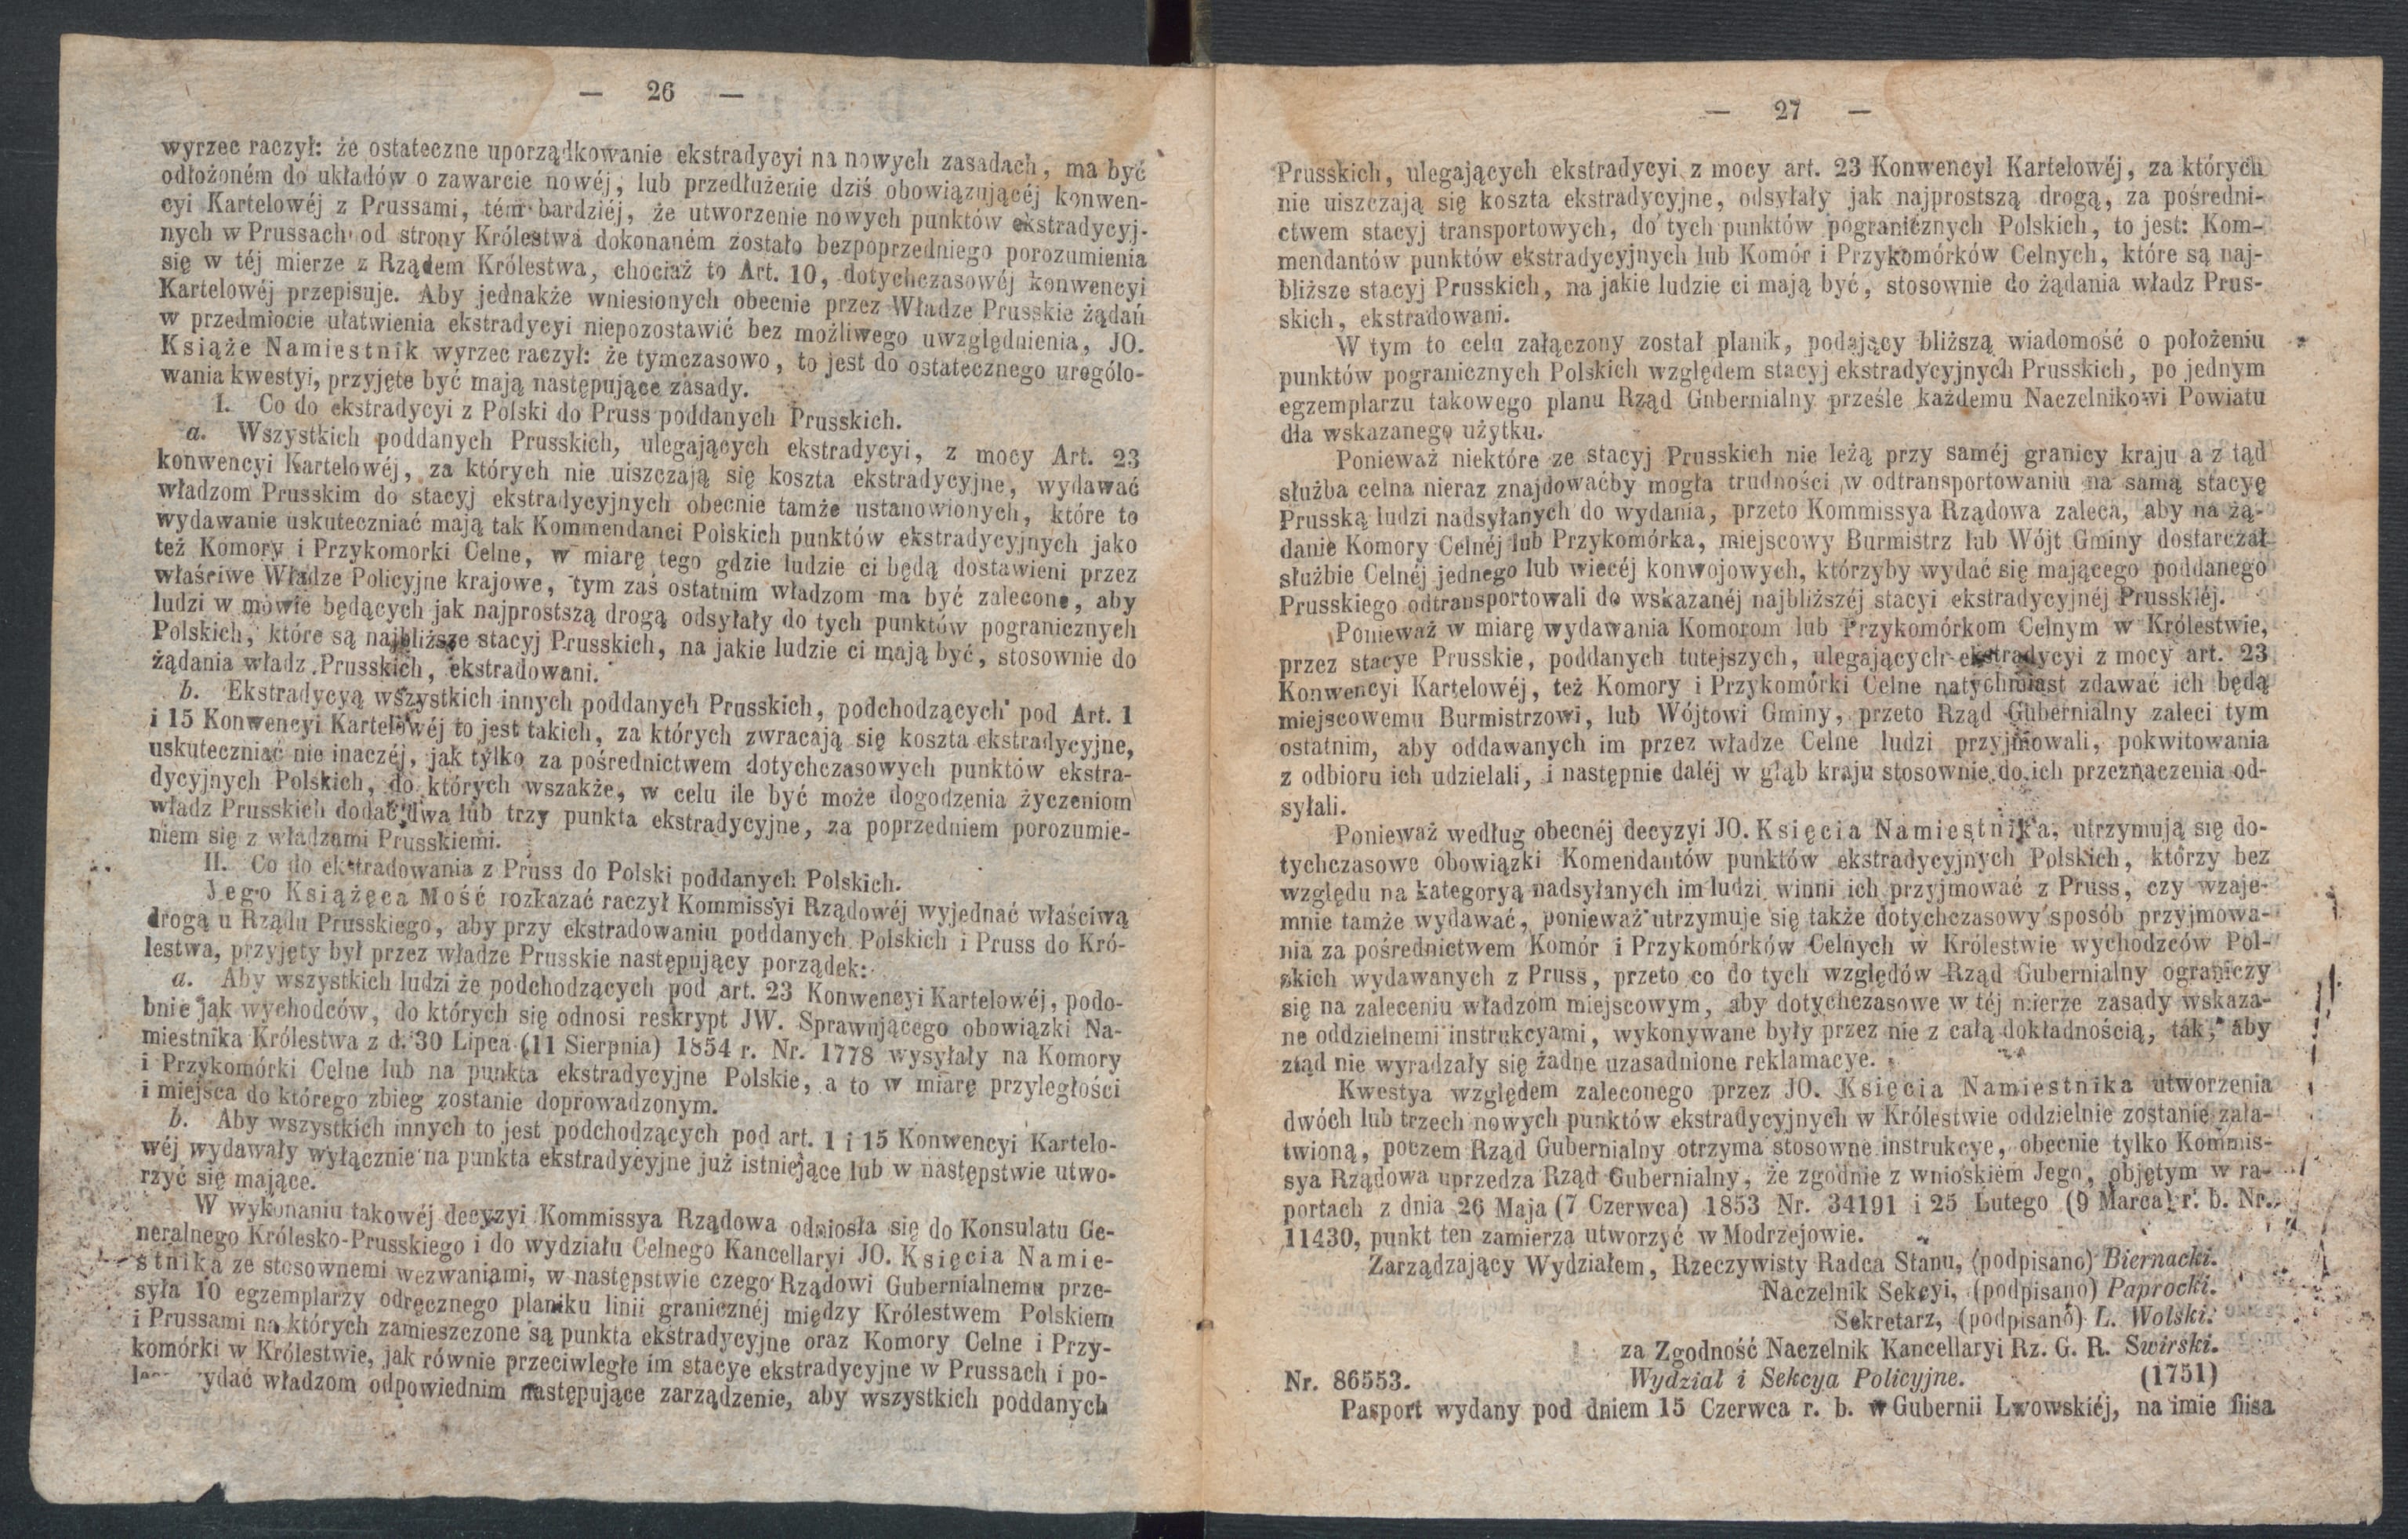 — 26 —
wyrzec raczył: że ostateczne uporządkowanie ekstradycyi na nowych zasadach, ma być
odłożoném do układów o zawarcie nowéj, lub przedłużenie dziś obowiązującéj konwen-
cyi Kartelowéj z Prussami, tém bardziéj, że utworzenie nowych punktów ekstradycyj-
nych w Prussach od strony Królestwa dokonaném zostało bezpoprzedniego porozumienia
się w téj mierze z Rządem Królestwa, chociaż to Art. 10, dotychczasowéj konwencyi
Kartelowéj przepisuje. Aby jednakże wniesionych obecnie przez Władze Prusskie żądań
w przedmiocie ułatwienia ekstradycyi niepozostawić bez możliwego uwzględnienia, JO.
Książe Namiestnik wyrzec raczył: że tymczasowo, to jest do ostatecznego urególo-
wania kwestyi, przyjęte być mają następujące zasady.
I. Co do ekstradycyi z Polski do Pruss poddanych Prusskich.
a. Wszystkich poddanych Prusskich, ulegających ekstradycyi, z mocy Art. 23
konwencyi Kartelowéj, za których nie uiszczają się koszta ekstradycyjne, wydawać
władzom Prusskim do stacyj ekstradycyjnych obecnie tamże ustanowionych, które to
wydawanie uskuteczniać mają tak Kommendanci Polskich punktów ekstradycyjnych jako
też Komory i Przykomorki Celne, w miarę tego gdzie ludzie ci będą dostawieni przez
właściwe Władze Policyjne krajowe, tym zaś ostatnim władzom ma być zalecone, aby
ludzi w mowie będących jak najprostszą drogą odsyłały do tych punktów pogranicznych
Polskich, które są najbliższe stacyj Prusskich, na jakie ludzie ci mają być, stosownie do
żądania władz Prusskich, ekstradowani.
b. Ekstradycyą wszystkich innych poddanych Prusskich, podchodzących pod Art. 1
i 15 Konwencyi Kartelowéj to jest takich, za których zwracają się koszta ekstradycyjne,
uskuteczniać nie inaczéj, jak tylko za pośrednictwem dotychczasowych punktów ekstra-
dycyjnych Polskich, do których wszakże, w celu ile być może dogodzenia życzeniom
władz Prusskich dodać dwa lub trzy punkta ekstradycyjne, za poprzedniem porozumie-
niem się z władzami Prusskiemi.
II. Co do ekstradowania z Pruss do Polski poddanych Polskich.
Jego Książęca Mość rozkazać raczył Kommissyi Rządowéj wyjednać właściwą
drogą u Rządu Prusskiego, aby przy ekstradowaniu poddanych Polskich i Pruss do Kró-
lestwa, przyjęty był przez władze Prusskie następujący porządek:
a. Aby wszystkich ludzi że podchodzących pod art. 23 Konwencyi Kartelowéj, podo-
bnie jak wychodców, do których się odnosi reskrypt JW. Sprawującego obowiązki Na-
miestnika Królestwa z d. 30 Lipca (11 Sierpnia) 1854 r. Nr. 1778 wysyłały na Komory
i Przykomórki Celne lub na punkta ekstradycyjne Polskie, a to w miarę przyległości
i miejsca do którego zbieg zostanie doprowadzonym.
b. Aby wszystkich innych to jest podchodzących pod art. 1 i 15 Konwencyi Kartelo-
wéj wydawały wyłącznie na punkta ekstradycyjne już istniejące lub w następstwie utwo-
rzyć się mające.
W wykonaniu takowéj decyzyi Kommissya Rządowa odniosła się do Konsulatu Ge-
neralnego Królesko-Prusskiego i do wydziału Celnego Kancellaryi JO. Księcia Namie-
stnika ze stosownemi wezwaniami, w następstwie czego Rządowi Gubernialnemu prze-
syła 10 egzemplarzy odręcznego planiku linii granicznéj między Królestwem Polskiem
i Prussami na których zamieszczone są punkta ekstradycyjne oraz Komory Celne i Przy-
komórki w Królestwie, jak równie przeciwległe im stacye ekstradycyjne w Prussach i po-
władzom odpowiednim następujące zarządzenie, aby wszystkich poddanych
— 27 —
Prusskich, ulegających ekstradycyi z mocy art. 23 Konwencyl Kartelowéj, za których
nie uiszczają się koszta ekstradycyjne, odsyłały jak najprostszą drogą, za pośredni-
ctwem stacyj transportowych, do tych punktów pogranicznych Polskich, to jest: Kom-
mendantów punktów ekstradycyjnych lub Komór i Przykomórków Celnych, które są naj-
bliższe stacyj Prusskich, na jakie ludzie ci mają być, stosownie do żądania władz Prus-
skich, ekstradowani.
W tym to celu załączony został planik, podający bliższą wiadomość o położeniu
punktów pogranicznych Polskich względem stacyj ekstradycyjnych Prusskich, po jednym
egzemplarzu takowego planu Rząd Gubernialny prześle każdemu Naczelnikowi Powiatu
dla wskazanego użytku.
Ponieważ niektóre ze stacyj Prusskich nie leżą przy saméj granicy kraju a z tąd
służba celna nieraz znajdowaćby mogła trudności w odtransportowaniu na samą stacyę
Prusską ludzi nadsyłanych do wydania, przeto Kommissya Rządowa zaleca, aby na żą-
danie Komory Celnéj lub Przykomórka, miejscowy Burmistrz lub Wójt Gminy dostarczał
służbie Celnéj jednego lub wiecéj konwojowych, którzyby wydać się mającego poddanego
Prusskiego odtransportowali do wskazanéj najbliższéj stacyi ekstradycyjnéj Prusskiéj.
Ponieważ w miarę wydawania Komorom lub Przykomórkom Celnym w Królestwie,
przez stacye Prusskie, poddanych tutejszych, ulegających ekstradycyi z mocy art. 23
Konwencyi Kartelowéj, też Komory i Przykomórki Celne natychmiast zdawać ich będą
miejscowemu Burmistrzowi, lub Wójtowi Gminy, przeto Rząd Gubernialny zaleci tym
ostatnim, aby oddawanych im przez władze Celne ludzi przyjmowali, pokwitowania
z odbioru ich udzielali, i następnie daléj w głąb kraju stosownie do ich przeznaczenia od-
syłali.
Ponieważ według obecnéj decyzyi JO. Księcia Namiestnika, utrzymują się do-
tychczasowe obowiązki Komendantów punktów ekstradycyjnych Polskich, którzy bez
względu na kategoryą nadsyłanych im ludzi winni ich przyjmować z Pruss, czy wzaje-
mnie tamże wydawać, ponieważ utrzymuje się także dotychczasowy sposób przyjmowa-
nia za pośrednictwem Komór i Przykomórków Celnych w Królestwie wychodzców Pol-
skich wydawanych z Pruss, przeto co do tych względów Rząd Gubernialny ograniczy
się na zaleceniu władzom miejscowym, aby dotychczasowe w téj mierze zasady wskaza-
ne oddzielnemi instrukcyami, wykonywane były przez nie z całą dokładnością, tak, aby
ztąd nie wyradzały się żadne uzasadnione reklamacye.
Kwestya względem zaleconego przez JO. Księcia Namiestnika utworzenia
dwóch lub trzech nowych punktów ekstradycyjnych w Królestwie oddzielnie zostanie zała-
twioną, poczem Rząd Gubernialny otrzyma stosowne instrukcye, obecnie tylko Kommis-
sya Rządowa uprzedza Rząd Gubernialny, że zgodnie z wnioskiem Jego, objętym w ra-
portach z dnia 26 Maja (7 Czerwca) 1853 Nr. 34191 i 25 Lutego (9 Marca) r. b. Nr.
11430, punkt ten zamierza utworzyć w Modrzejowie.
Zarządzający Wydziałem, Rzeczywisty Radca Stanu, (podpisano) Biernacki.
Naczelnik Sekcyi, (podpisano) Paprocki.
Sekretarz, (podpisano) L. Wolski.
za Zgodność Naczelnik Kancellaryi Rz. G. R. Swirski.
Nr. 86553. Wydział i Sekcya Policyjne. (1751)
Pasport wydany pod dniem 15 Czerwca r. b. w Gubernii Lwowskiéj, na imie